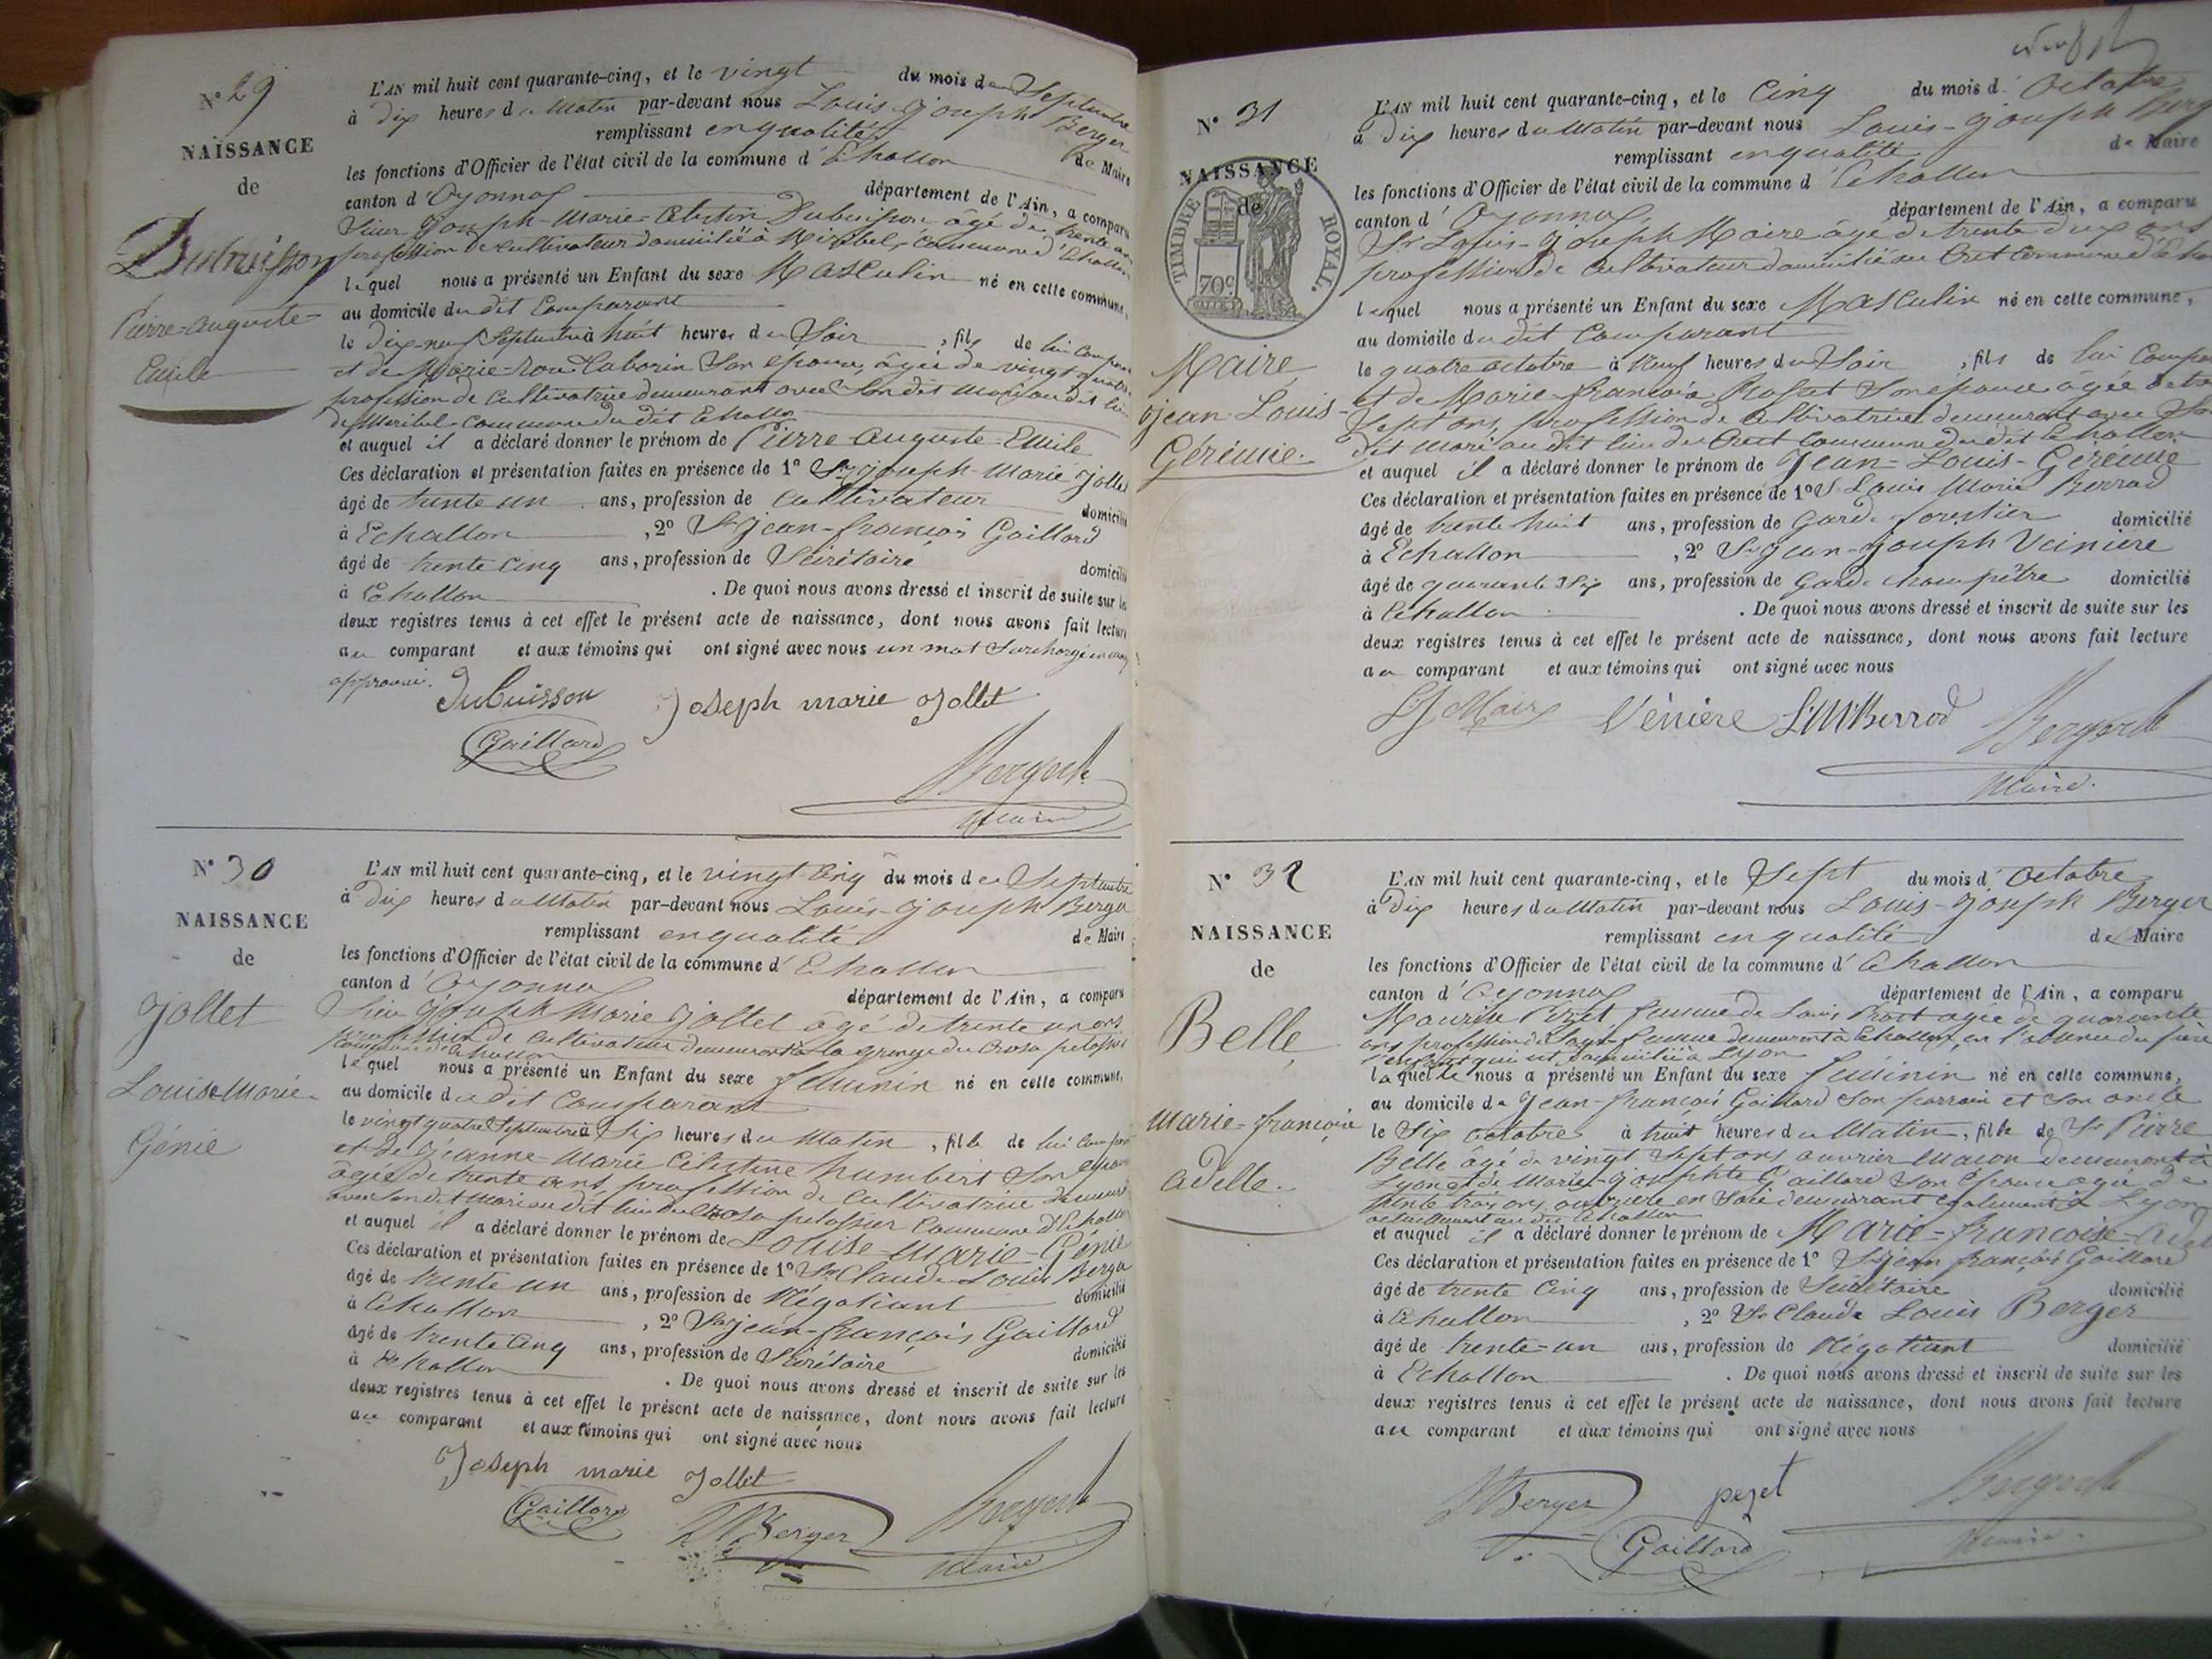 N° 29
NAISSANCE
de
Dubuisson
Pierre-Auguste-
Emile
L'AN mil huit cent quarante-cinq, et le vingt du mois de Septembre
à dix heures du Matin par-devant nous Louis-Joseph Berger
remplissant en qualité de Maire
les fonctions d'Officier de l'état civil de la commune d'Echallon
canton d'Oyonnax département de l'Ain, a comparu
Sieur Joseph-Marie-Celestin Dubuisson âgé de trente
profession de cultivateur domicilié à Miribel, Commune d'Echallon
lequel nous a présenté un Enfant du sexe Masculin né en cette commune,
au domicile du dit Comparant
le dix neuf Septembre à huit heures du Soir, fils de lui Comparant
et de Marie-Rose Laborin Son épouse, âgée de vingt quatre
profession de Cultivatrice demeurant avec Son dit mari au dit lieu
de Miribel Commune du dit Echallon
et auquel il a déclaré donner le prénom de Pierre-Auguste-Emile
Ces déclaration et présentation faites en présence de 1° Sr Joseph-Marie Jollet
âgé de trente un ans, profession de Cultivateur domicilié
à Echallon, 2° Sr Jean-françois Gaillard
âgé de trente cinq ans, profession de Sécrétaire domicilié
à Echallon. De quoi nous avons dressé et inscrit de suite sur les
deux registres tenus à cet effet le présent acte de naissance, dont nous avons fait lecture
au comparant et aux témoins qui ont signé avec nous un mot Surchargé
approuvé.
Dubuisson Joseph marie Jollet
Gaillard
Berger
Maire
N° 30
NAISSANCE
de
Jollet
Louise-Marie-
Génie
L'AN mil huit cent quarante-cinq, et le vingt cinq du mois de Septembre
à dix heures du Matin par-devant nous Louis-Joseph Berger
remplissant en qualité de Maire
les fonctions d'Officier de l'état civil de la commune d'Echallon
canton d'Oyonnax département de l'Ain, a comparu
Sieur Joseph Marie Jollet âgé de trente un ans
profession de Cultivateur demeurant à la grange du Crosa pelossier
Commune d'Echallon
lequel nous a présenté un Enfant du sexe féminin né en cette commune,
au domicile du dit Comparant
le vingt quatre Septembre à Six heures du Matin, fille de lui Comparant
et de Jeanne-Marie Célestine humbert Son épouse
âgée de trente ans, profession de Cultivatrice demeurant
avec Son dit Mari au dit lieu du Crosa pelossier Commune d'Echallon
et auquel il a déclaré donner le prénom de Louise-Marie-Génie
Ces déclaration et présentation faites en présence de 1° Sr Claude-Louis Berger
âgé de trente un ans, profession de Négotiant domicilié
à Echallon, 2° Sr Jean-françois Gaillard
âgé de trente cinq ans, profession de Sécrétaire domicilié
à Echallon. De quoi nous avons dressé et inscrit de suite sur les
deux registres tenus à cet effet le présent acte de naissance, dont nous avons fait lecture
au comparant et aux témoins qui ont signé avec nous
Joseph marie Jollet
Gaillard Berger Berger
Maire
N° 31
NAISSANCE
de
TIMBRE ROYAL.
70c
Maire
Jean-Louis-
Gérémie.
L'AN mil huit cent quarante-cinq, et le Cinq du mois d'Octobre
à dix heures du Matin par-devant nous Louis-Joseph Berger
remplissant en qualité de Maire
les fonctions d'Officier de l'état civil de la commune d'Echallon
canton d'Oyonnax département de l'Ain, a comparu
Sr Louis-Joseph Maire âgé de trente deux ans
profession de Cultivateur domicilié au Cret Commune d'Echallon
lequel nous a présenté un Enfant du sexe Masculin né en cette commune,
au domicile du dit Comparant
le quatre octobre à Neuf heures du Soir, fils de lui Comparant
et de Marie françoise Rosset Son épouse âgée de trente
Sept ans, profession de Cultivatrice demeurant avec Son
dit mari au dit lieu du Cret Commune du dit Echallon
et auquel il a déclaré donner le prénom de Jean-Louis-Gérémie
Ces déclaration et présentation faites en présence de 1° Sr Louis Marie Berrod
âgé de trente huit ans, profession de Garde forestier domicilié
à Echallon, 2° Sr Jean-Joseph Veinière
âgé de quarante Six ans, profession de Garde champêtre domicilié
à Echallon. De quoi nous avons dressé et inscrit de suite sur les
deux registres tenus à cet effet le présent acte de naissance, dont nous avons fait lecture
au comparant et aux témoins qui ont signé avec nous
LJ Maire Vénière LM Berrod Berger
Maire.
N° 32
NAISSANCE
de
Belle
Marie-françoise
Adelle.
L'AN mil huit cent quarante-cinq, et le Sept du mois d'Octobre
à Dix heures du Matin par-devant nous Louis-Joseph Berger
remplissant en qualité de Maire
les fonctions d'Officier de l'état civil de la commune d'Echallon
canton d'Oyonnax département de l'Ain, a comparu
femme de Louis âgée de quarante
ans profession de Sage-femme demeurant à Echallon, en l'absence du père
l'enfant qui est domicilié à Lyon
laquelle nous a présenté un Enfant du sexe féminin né en cette commune,
au domicile de Jean-françois Gaillard Son parrain et Son oncle
le Six octobre à huit heures du Matin, fille de Sr Pierre
Belle âgé de vingt Sept ans ouvrier Maçon demeurant à
Lyon et de Marie-Josephte Gaillard Son épouse âgée de
trente trois ans, ouvrière en Soie demeurant également à Lyon
actuellement au dit Echallon
et auquel il a déclaré donner le prénom de Marie-françoise-Adelle
Ces déclaration et présentation faites en présence de 1° Sr Jean françois Gaillard
âgé de trente Cinq ans, profession de Sécrétaire domicilié
à Echallon, 2° Sr Claude Louis Berger
âgé de trente-un ans, profession de Négotiant domicilié
à Echallon. De quoi nous avons dressé et inscrit de suite sur les
deux registres tenus à cet effet le présent acte de naissance, dont nous avons fait lecture
au comparant et aux témoins qui ont signé avec nous
Berger pezet Berger
Gaillard Maire.